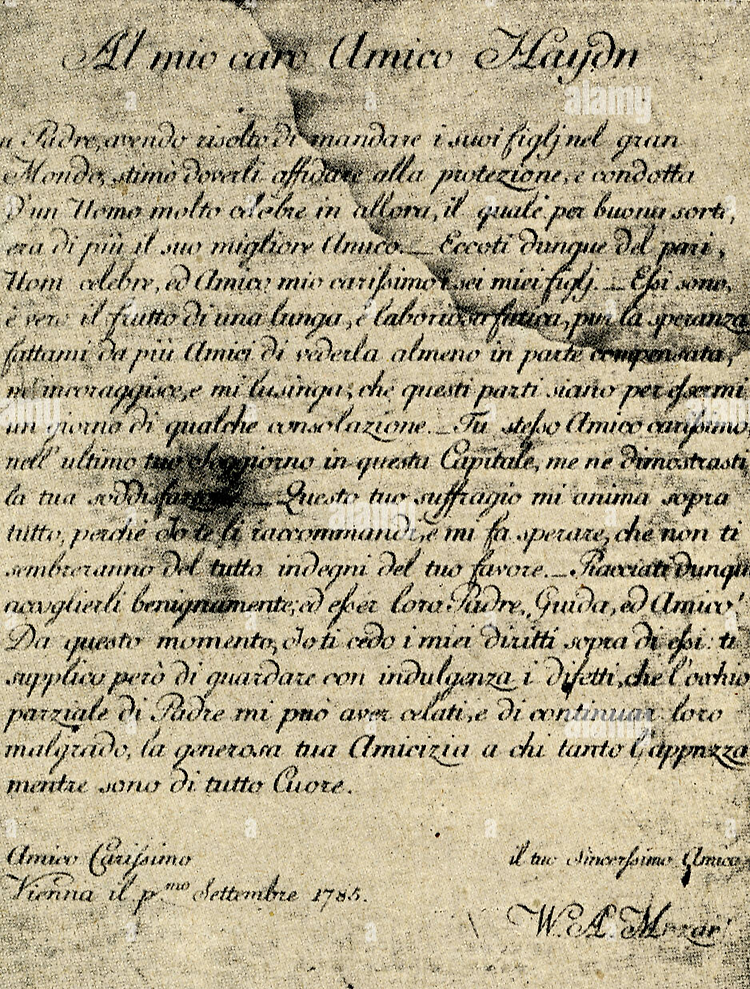 Al mio caro Amico Haydn
n Padre, avendo risolto di mandare i suoi figlj nel gran
Mondo, stimò doverli affidare alla protezione, e condotta
d'un Uomo molto celebre in allora, il quale per buona sorte,
era di più il suo migliore Amico. _ Eccoti dunque del pari,
Uom celebre, ed Amico mio carissimo i sei miei figlj. _ Essi sono,
è vero il frutto di una lunga, e laboriosa fatica, pur la speranza
fattami da più Amici di vederla almeno in parte compensata,
m'incoraggisce, e mi lusinga, che questi parti siano per essermi
un giorno di qualche consolazione. _ Tu stesso Amico carissimo,
nell'ultimo tuo Soggiorno in questa Capitale, me ne dimostrasti
la tua soddisfazione. _ Questo tuo suffragio mi anima sopra
tutto, perchè Io te li raccommandi, e mi fa sperare, che non ti
sembreranno del tutto indegni del tuo favore. _ Piacciati dunque
accoglierli benignamente; ed esser loro Padre, Guida, ed Amico!
Da questo momento, Io ti cedo i miei diritti sopra di essi: ti
supplico però di guardare con indulgenza i difetti, che l'occhio
parziale di Padre mi può aver celati, e di continuar loro
malgrado, la generosa tua Amicizia a chi tanto l'apprezza
mentre sono di tutto Cuore.
Amico Carissimo
il tuo Sincerissimo Amico
Vienna il p.mo Settembre 1785.
W. A. Mozart